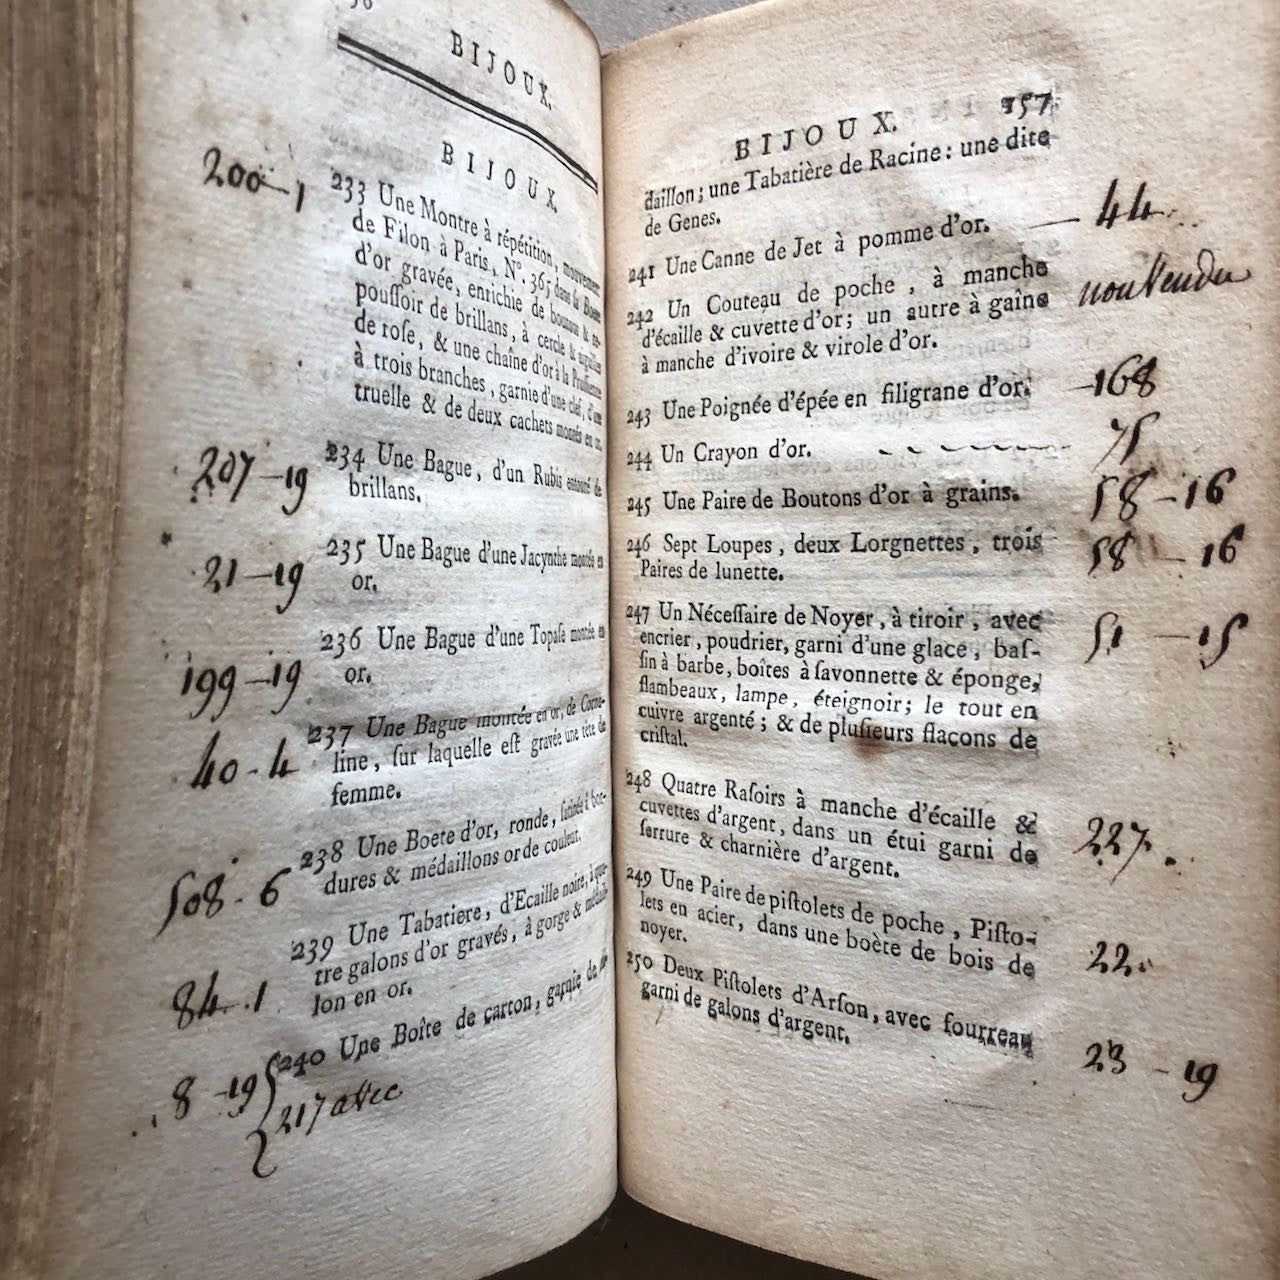 56
BIJOUX.
BIJOUX.
200-1
233 Une Montre à répétition, mouvement
de Filon à Paris, N°. 365 dans la
d'or gravée, enrichie de boutons &
pouſſoir de brillans, à cercle & aiguilles
de roſe, & une chaîne d'or à la Pruſſienne
à trois branches, garnie d'une clef, d'une
truelle & de deux cachets montés en or.
207-19
234 Une Bague, d'un Rubis entouré de
brillans.
21-19
235 Une Bague d'une Jacynthe montée en
or.
199-19
236 Une Bague d'une Topaſe montée en
or.
40-4
237 Une Bague montée en or, de Corna-
line, ſur laquelle eſt gravée une tête de
femme.
508-6
238 Une Boete d'or, ronde, ſatinée à bor-
dures & médaillons or de couleur.
84.1
239 Une Tabatiere, d'Ecaille noire, à qua-
tre galons d'or gravés, à gorge & médail-
lon en or.
8-19
240 Une Boîte de carton, garnie de
217 avec
BIJOUX. 157
daillon; une Tabatière de Racine: une dite
de Genes.
241 Une Canne de Jet à pomme d'or. — 44
242 Un Couteau de poche, à manche
d'écaille & cuvette d'or; un autre à gaîne
à manche d'ivoire & virole d'or.
non Vendu
243 Une Poignée d'épée en filigrane d'or. -168
244 Un Crayon d'or. 75
245 Une Paire de Boutons d'or à grains. 58-16
246 Sept Loupes, deux Lorgnettes, trois
Paires de lunette.
58-16
247 Un Néceſſaire de Noyer, à tiroir, avec
encrier, poudrier, garni d'une glace, baſ-
ſin à barbe, boîtes à ſavonnette & éponge,
flambeaux, lampe, éteignoir; le tout en
cuivre argenté; & de pluſieurs flaçons de
criſtal.
51-15
248 Quatre Raſoirs à manche d'écaille &
cuvettes d'argent, dans un étui garni de
ſerrure & charnière d'argent.
227.
249 Une Paire de piſtolets de poche, Piſto-
lets en acier, dans une boète de bois de
noyer.
22.
250 Deux Piſtolets d'Arſon, avec fourreau
garni de galons d'argent.
23-19